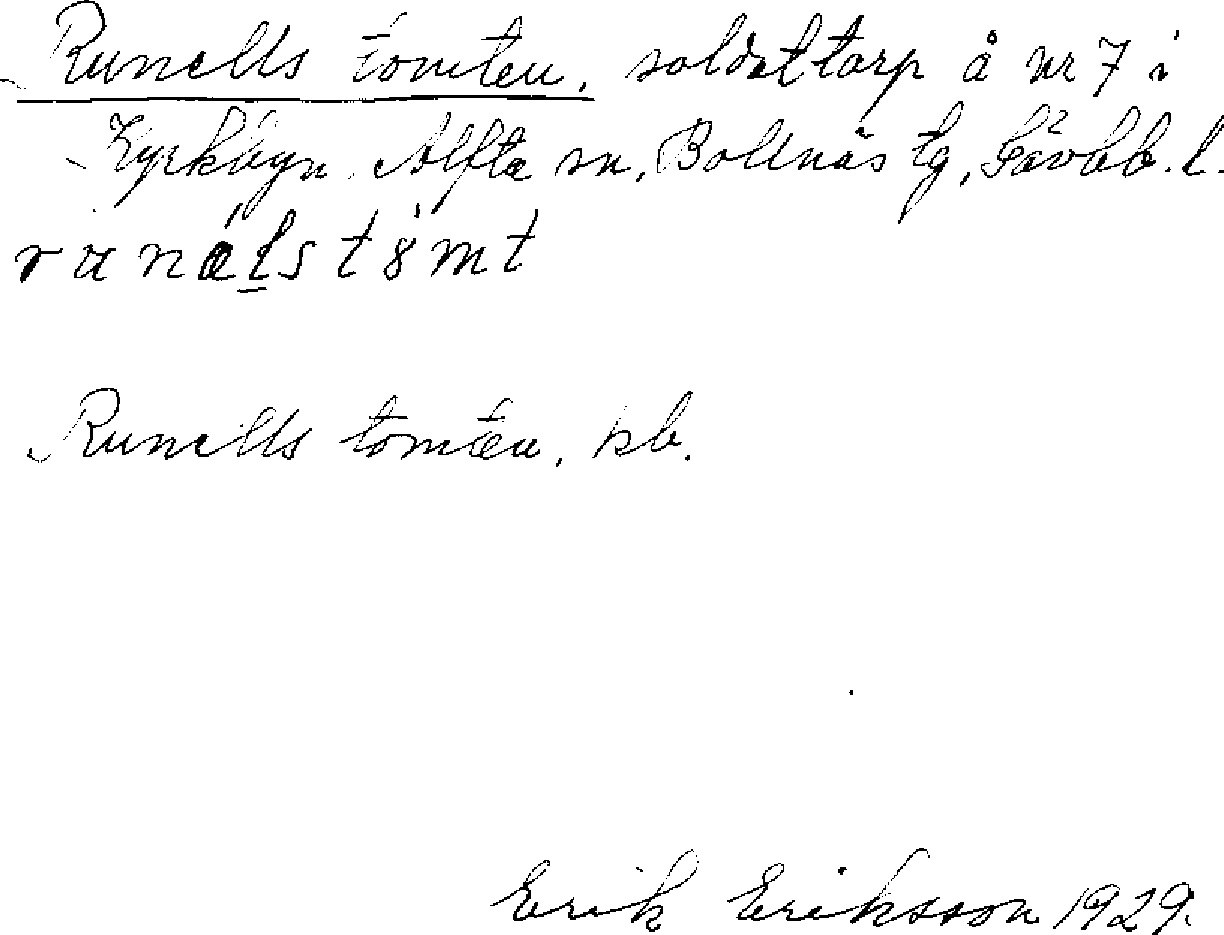 Runells tomten, soldattorp å nr 7 i
Kyrkbyn, Alfta sn, Bollnäs tg, Gävleb. l.
runælstömt
Runells tomten, kb.
Erik Eriksson 1929.